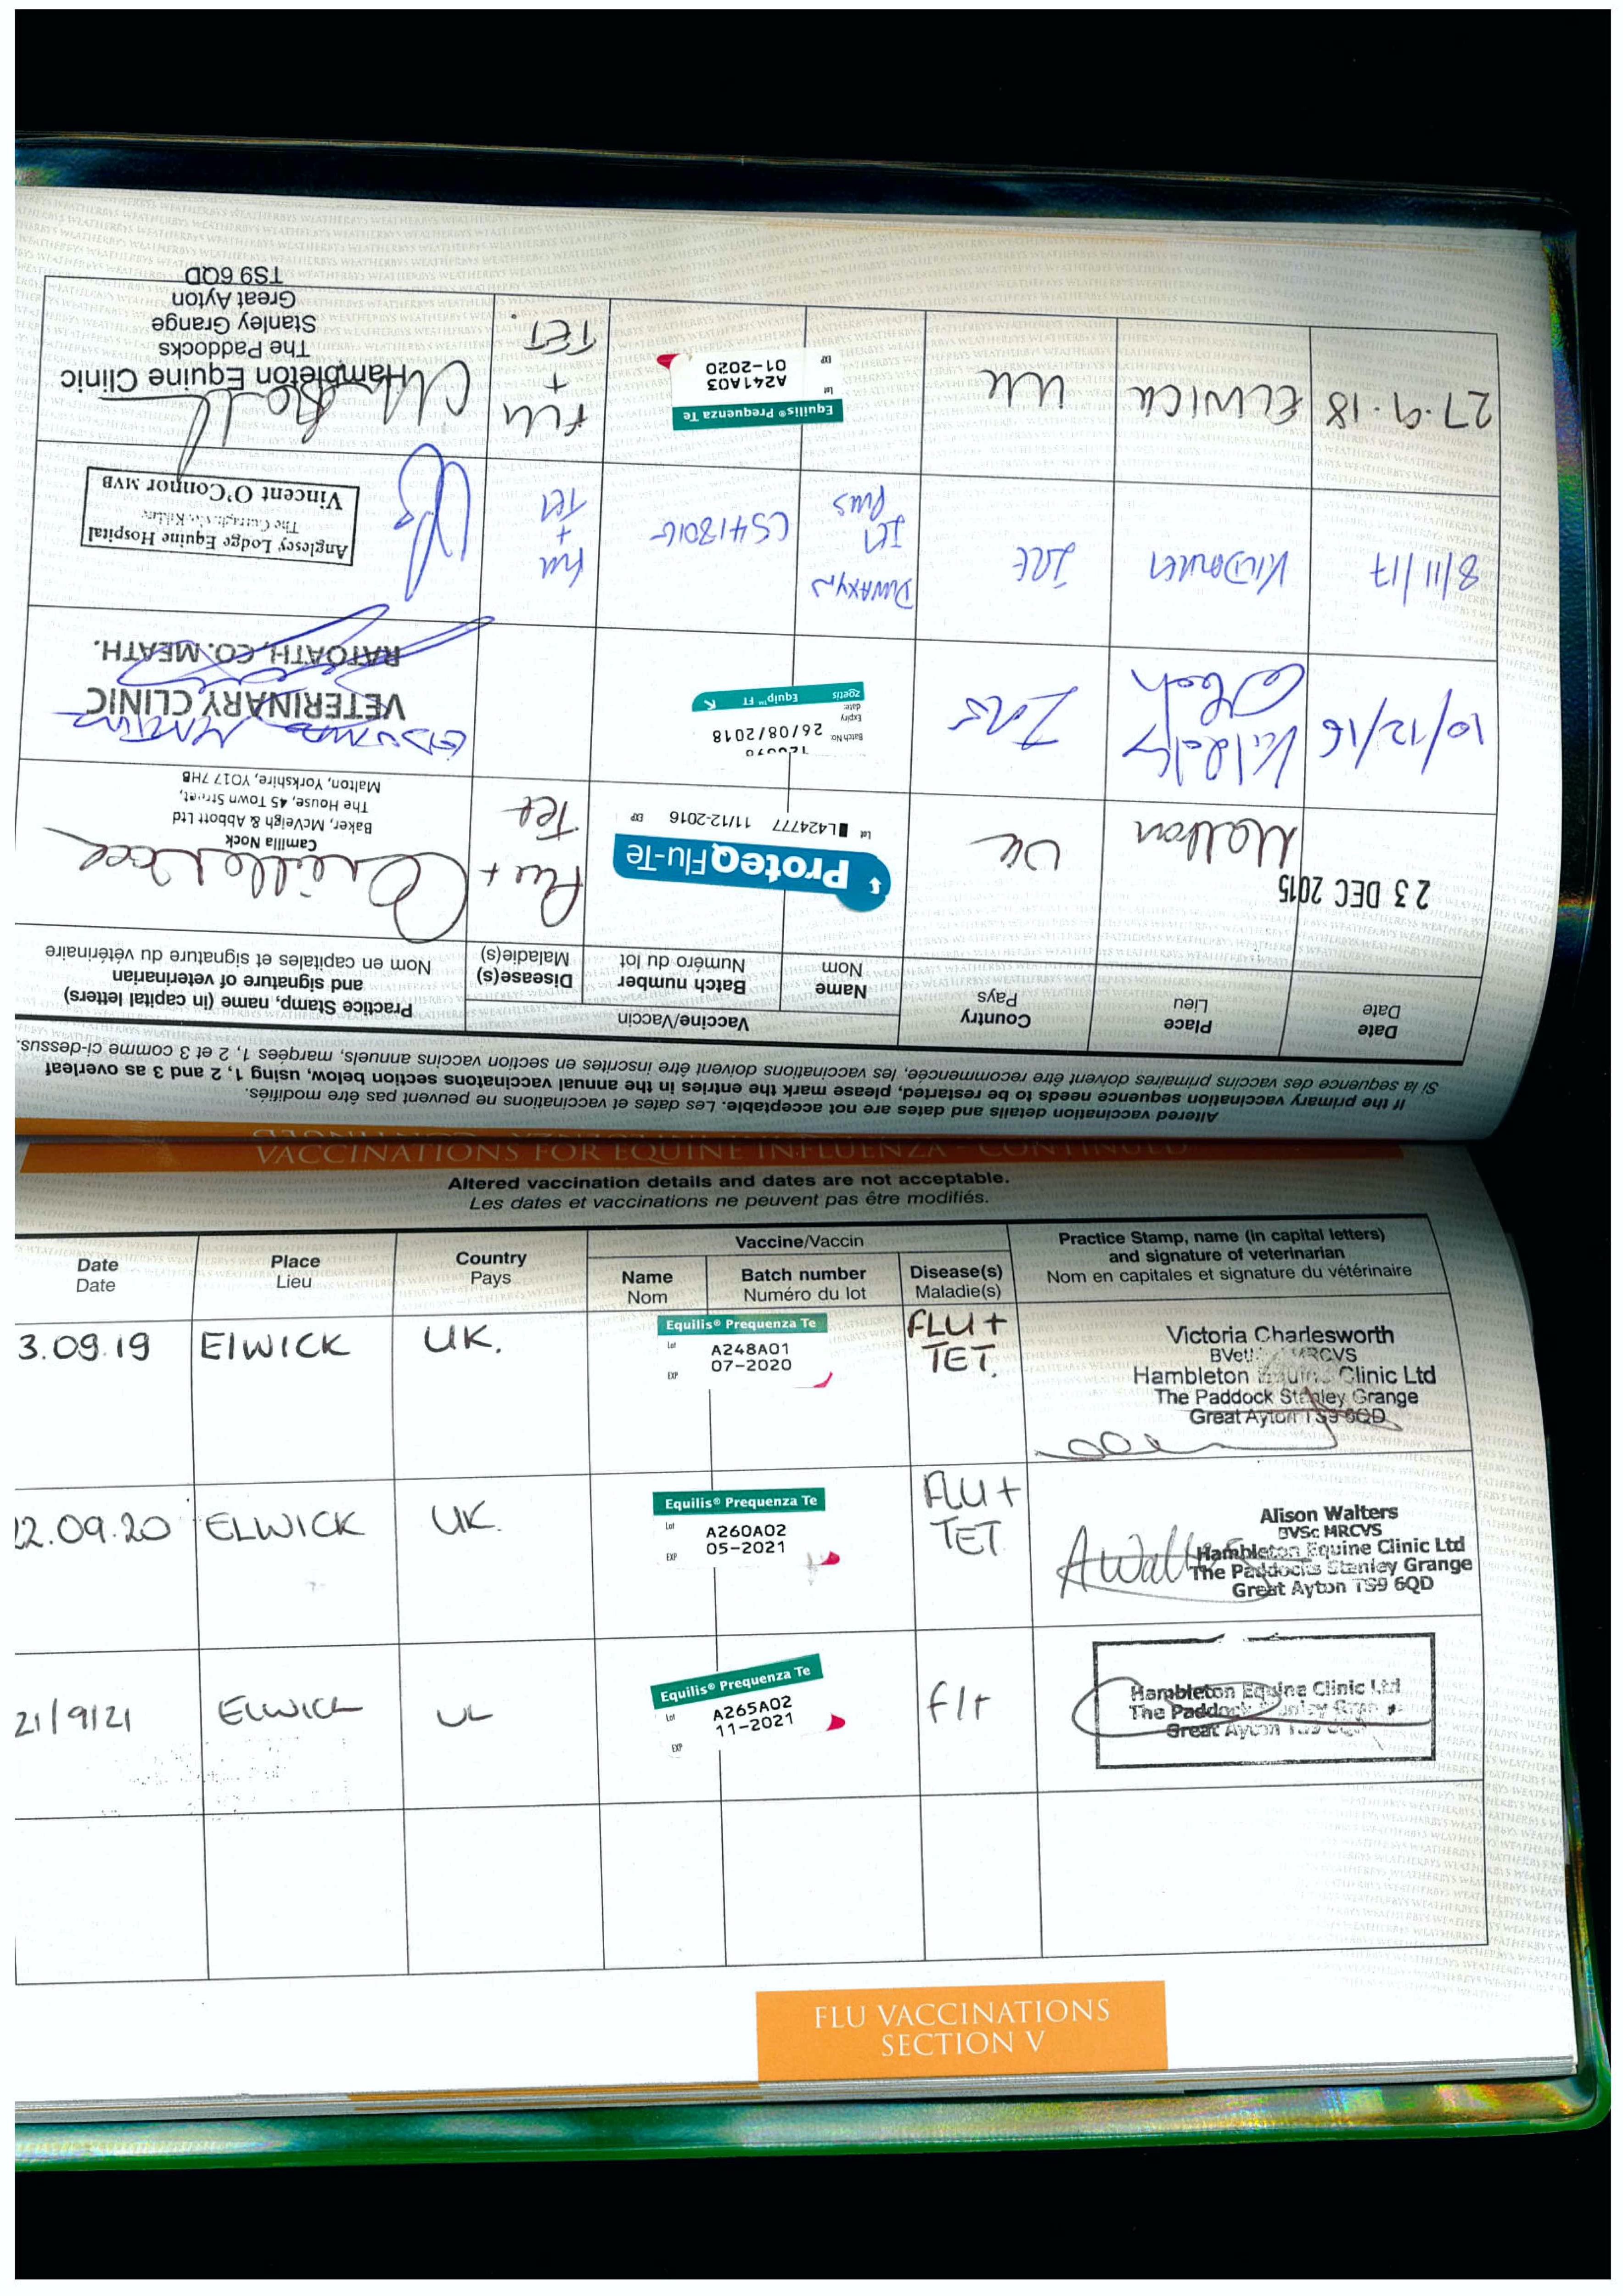 Altered vaccination details and dates are not acceptable. Les dates et vaccinations ne peuvent pas être modifiés.
If the primary vaccination sequence needs to be restarted, please mark the entries in the annual vaccinatons section below, using 1, 2 and 3 as overleaf
Si la sequence des vaccins primaires doivent être recommencée, les vaccinations doivent être inscrites en section vaccins annuels, marqées 1, 2 et 3 comme ci-dessus.
Date
Date
Place
Lieu
Country
Pays
Vaccine/Vaccin
Name
Nom
Batch number
Numéro du lot
Disease(s)
Maladie(s)
Practice Stamp, name (in capital letters)
and signature of veterinarian
Nom en capitales et signature du vétérinaire
23 DEC 2015
Malton
UK
ProteqFlu-Te
Lot L424777 11/12-2016 EXP
Flu +
Tet
Camilla Nock
Baker, McVeigh & Abbott Ltd
The House, 45 Town Street,
Malton, Yorkshire, YO17 7HB
10/12/16
Batch No:
Expiry
date:
26/08/2018
zoetis Equip™ FT
VETERINARY CLINIC
RATOATH, CO. MEATH.
8/11/17
IRE
CS418016
Flu
+
Tet
Anglesey Lodge Equine Hospital
The Curragh, Co. Kildare
Vincent O'Connor MVB
27.9.18
ELWICK
UK
Equilis® Prequenza Te
Lot A241A03
EXP 01-2020
FLU
+
TET.
Hambleton Equine Clinic
The Paddocks
Stanley Grange
Great Ayton
TS9 6QD
VACCINATIONS FOR EQUINE INFLUENZA - CONTINUED
Altered vaccination details and dates are not acceptable.
Les dates et vaccinations ne peuvent pas être modifiés.
Date
Date
Place
Lieu
Country
Pays
Vaccine/Vaccin
Name
Nom
Batch number
Numéro du lot
Disease(s)
Maladie(s)
Practice Stamp, name (in capital letters)
and signature of veterinarian
Nom en capitales et signature du vétérinaire
3.09.19
ElWICK
UK.
Equilis® Prequenza Te
Lot A248A01
EXP 07-2020
FLU +
TET.
Victoria Charlesworth
MRCVS
Hambleton Equine Clinic Ltd
The Paddock Stanley Grange
Great Ayton TS9 6QD
12.09.20
ELWICK
UK.
Equilis® Prequenza Te
Lot A260A02
EXP 05-2021
FLU +
TET
Alison Walters
BVSc MRCVS
Hambleton Equine Clinic Ltd
The Paddocks Stanley Grange
Great Ayton TS9 6QD
21/9/21
ELWICK
UK
Equilis® Prequenza Te
Lot A265A02
EXP 11-2021
F/T
Hambleton Equine Clinic Ltd
The Paddock Stanley
Great Ayton
FLU VACCINATIONS
SECTION V